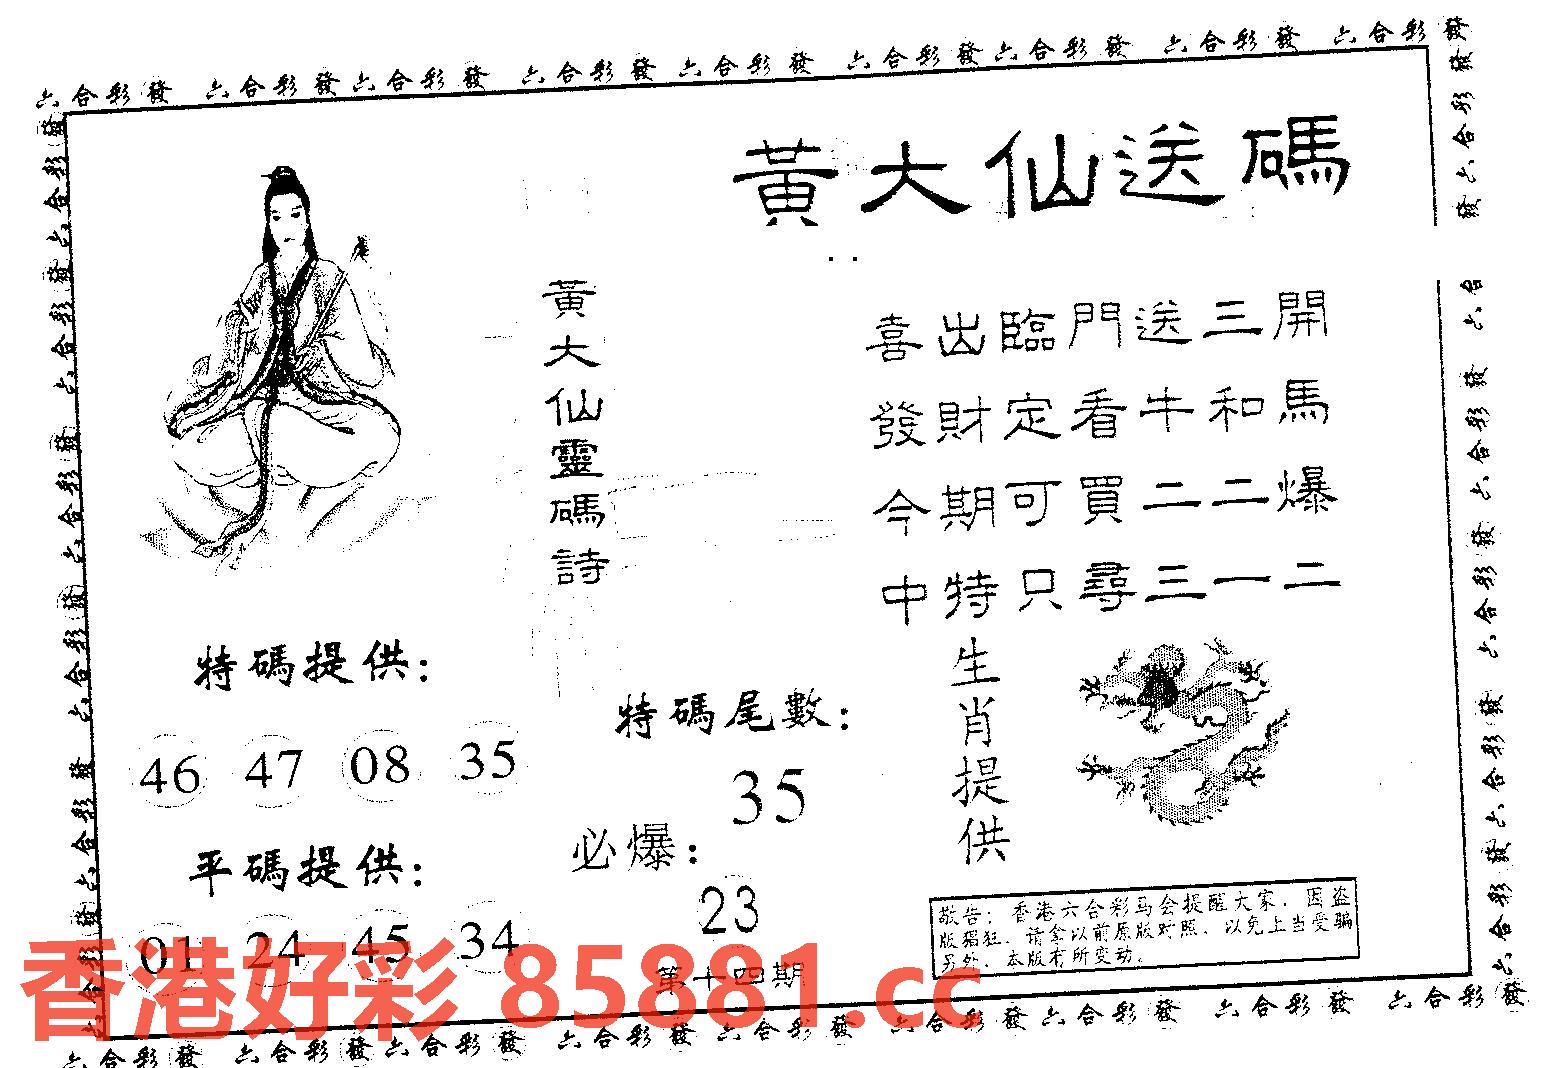 六合彩發 六合彩發 六合彩發 六合彩發 六合彩發 六合彩發 六合彩發 六合彩發 六合彩發
黃大仙送碼
黃大仙靈碼詩
喜出臨門送三開
發財定看牛和馬
今期可買二二爆
中特只尋三一二
特碼提供：
46 47 08 35
平碼提供：
01 24 45 34
特碼尾數：
35
必爆：
23
第十四期
生肖提供
敬告：香港六合彩马会提醒大家．因盗
版猖狂．请拿以前原版对照．以免上当受骗
另外．本版有所变动．
香港好彩 85881.cc
六合彩發 六合彩發 六合彩發 六合彩發 六合彩發 六合彩發 六合彩發 六合彩發 六合彩發